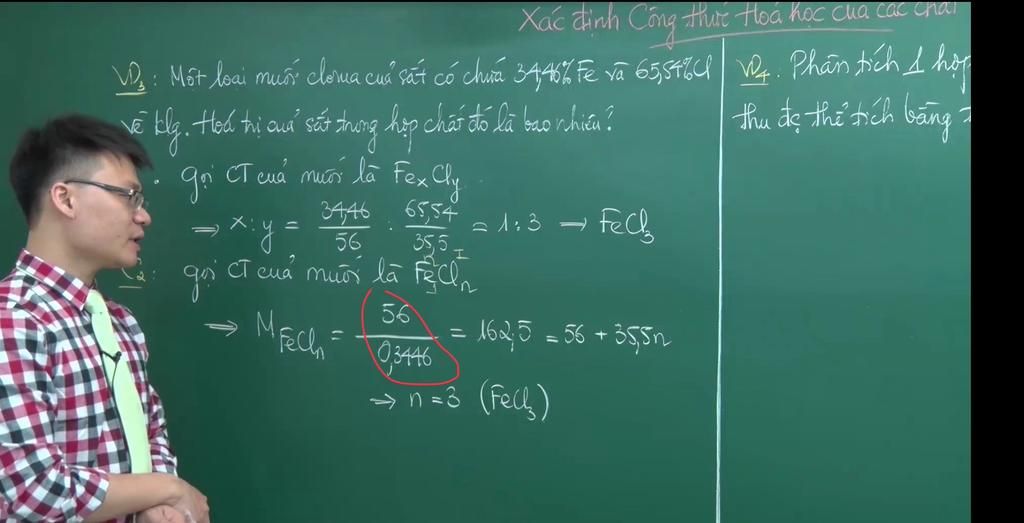 Xác định Công thức Hoá học của các chất
VD3: Một loại muối clorua của sắt có chứa 34,46% Fe và 65,54% Cl
về klg. Hoá trị của sắt trong hợp chất đó là bao nhiêu?
. gọi CT của muối là FexCly
⇒ x : y = 34,46/56 : 65,54/35,5 = 1 : 3 → FeCl3
C2: gọi CT của muối là FeCln
⇒ M FeCln = 56/0,3446 = 162,5 = 56 + 35,5n
⇒ n = 3 (FeCl3)
VD4. Phân tích 1 hợp
thu đc thể tích bằng